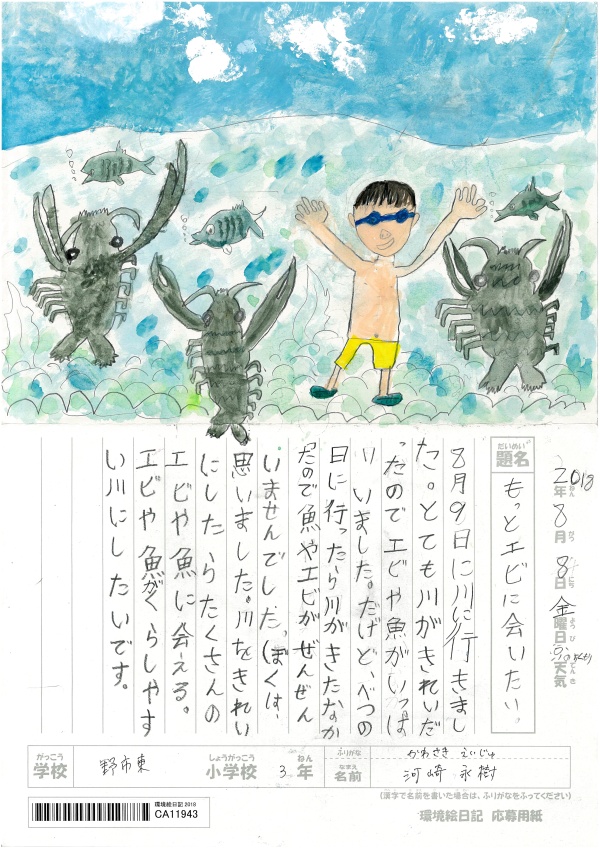 2018年8月8日金曜日 天気
だいめい
題名
もっとエビに会いたい。
8月9日に川に行きまし
た。とても川がきれいだ
ったのでエビや魚がいっぱ
いいました。だけど、べつの
日に行ったら川がきたなか
ったので魚やエビがぜんぜん
いませんでした。ぼくは、
思いました。川をきれい
にしたらたくさんの
エビや魚に会える。
エビや魚がくらしやす
い川にしたいです。
がっこう しょうがっこう ねん ふりがな かわさき えいじゅ
学校 野市東 小学校 3年 なまえ 名前 河崎 永樹
(漢字で名前を書いた場合は、ふりがなをふってください)
環境絵日記 2018
CA11943
環境絵日記 応募用紙